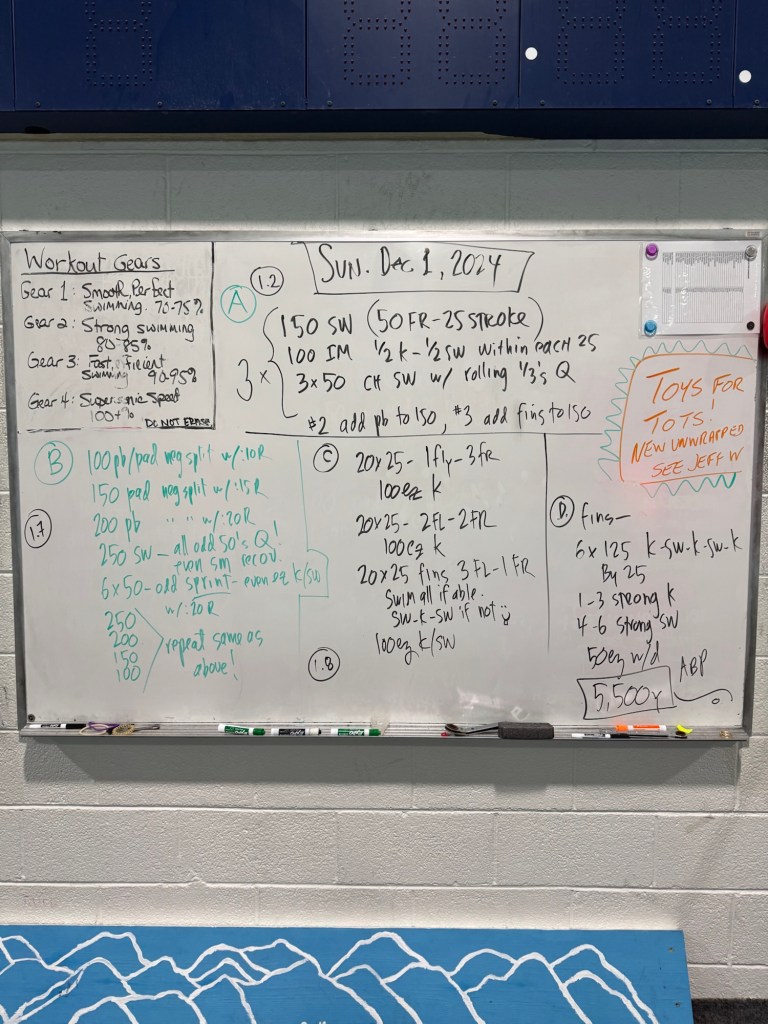 Workout Gears
Gear 1: Smooth, Perfect
Swimming. 70-75%
Gear 2: Strong swimming
80-85%
Gear 3: Fast, efficient
Swimming 90-95%
Gear 4: Supersonic Speed
100+%
DO NOT ERASE
SUN. Dec 1, 2024
A
1.2
3x
150 SW (50 FR-25 STROKE)
100 IM 1/2 K-1/2 SW within each 25
3x50 CH SW w/ rolling 1/3's Q
#2 add pb to 150, #3 add fins to 150
TOYS FOR
TOTS!
NEW UNWRAPPED
SEE JEFF W
B
1.7
100 pb/pad neg split w/:10R
150 pad neg split w/:15R
200 pb " " w/:20R
250 SW - all odd 50's Q!
even sm recov.
6x50-odd sprint-even ez K/SW
w/:20R
250
200
150
100
repeat same as
above!
C
20x25-1fly-3FR
100ez K
20x25-2FL-2FR
100ez K
20x25 fins 3FL-1FR
Swim all if able.
SW-K-SW if not
100ez K/SW
1.8
D.
fins-
6x125 K-SW-K-SW-K
By 25
1-3 strong K
4-6 strong SW
50ez w/d
5,500y
ABP